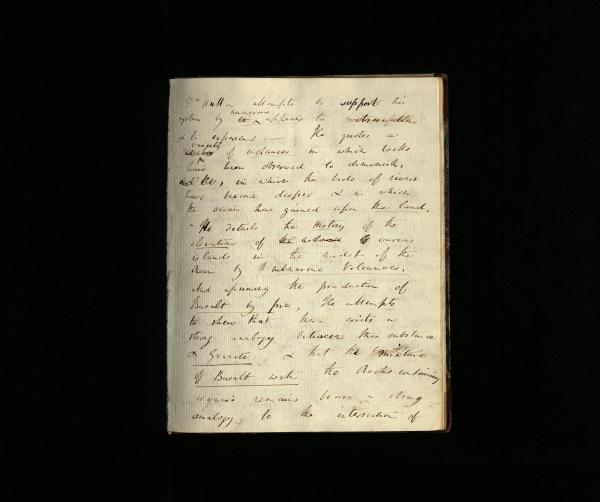 Dr Hutton attempts to support his
system by numerous appeals to observation
& to experiment — He quotes a
variety of instances in which rocks
have been observed to diminish,
in which the beds of rivers
have become deeper & in which
the ocean has gained upon the land.
- He details the History of the
elevation of various
islands in the midst of the
Ocean by Submarine Volcanoes.
And assuming the production of
Basalt by fire. He attempts
to shew that there exists a
strong analogy between this substance
& Granite & that the mixture
of Basalt with the Rocks containing
organic remains bears a strong
analogy to the intersection of